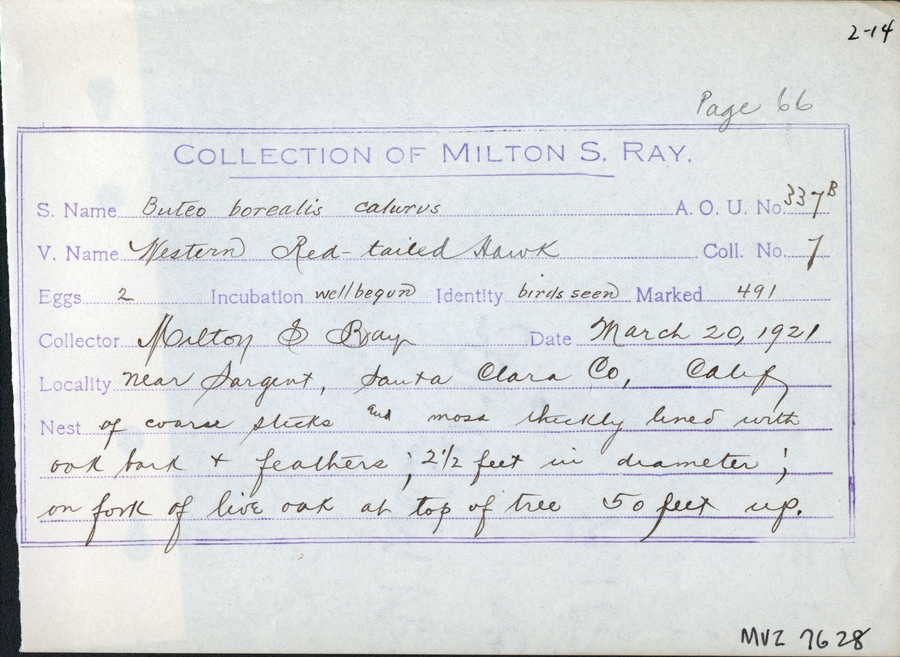 2-14
Page 66
COLLECTION OF MILTON S. RAY.
S. Name Buteo borealis calurus A. O. U. No. 337B
V. Name Western Red-tailed Hawk Coll. No. 7
Eggs 2 Incubation well begun Identity birds seen Marked 491
Collector Milton S Ray Date March 20, 1921
Locality near Sargent, Santa Clara Co, Calif
Nest of coarse sticks and moss thickly lined with
oak bark + feathers; 2 1/2 feet in diameter;
on fork of live oak at top of tree 50 feet up.
MVZ 7628